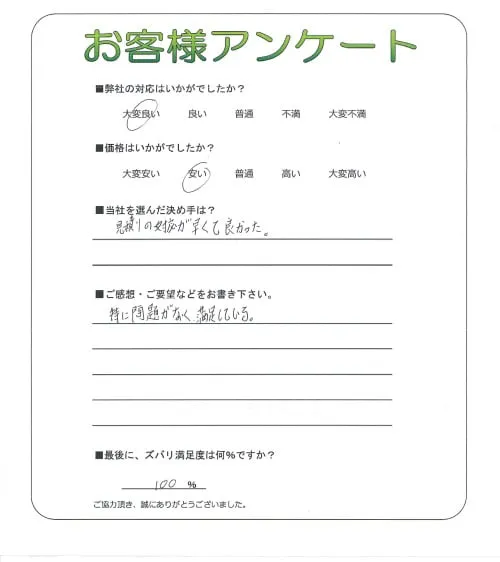 お客様アンケート
■弊社の対応はいかがでしたか？
大変良い 良い 普通 不満 大変不満
■価格はいかがでしたか？
大変安い 安い 普通 高い 大変高い
■当社を選んだ決め手は？
見積りの対応が早くて良かった。
■ご感想・ご要望などをお書き下さい。
特に問題がなく、満足している。
■最後に、ズバリ満足度は何％ですか？
100 ％
ご協力頂き、誠にありがとうございました。